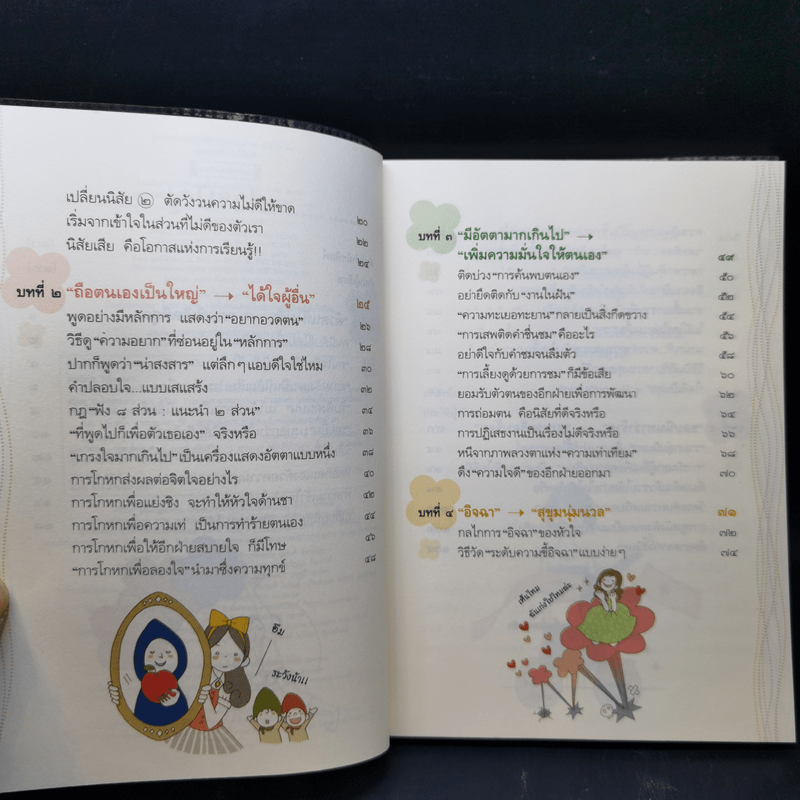 เปลี่ยนนิสัย ๒ ตัดวังวนความไม่ดีให้ขาด ๒๐
เริ่มจากเข้าใจในส่วนที่ไม่ดีของตัวเรา ๒๒
นิสัยเสีย คือโอกาสแห่งการเรียนรู้!! ๒๔
บทที่ ๒ “ถือตนเองเป็นใหญ่” → “ได้ใจผู้อื่น” ๒๕
พูดอย่างมีหลักการ แสดงว่า“อยากอวดตน” ๒๖
วิธีดู“ความอยาก”ที่ซ่อนอยู่ใน“หลักการ” ๒๘
ปากก็พูดว่า“น่าสงสาร” แต่ลึกๆแอบดีใจใช่ไหม ๓๐
คำปลอบใจ...แบบเสแสร้ง ๓๒
กฎ“ฟัง ๘ ส่วน : แนะนำ ๒ ส่วน” ๓๔
“ที่พูดไปก็เพื่อตัวเธอเอง” จริงหรือ ๓๖
“เกรงใจมากเกินไป”เป็นเครื่องแสดงอัตตาแบบหนึ่ง ๓๘
การโกหกส่งผลต่อจิตใจอย่างไร ๔๐
การโกหกเพื่อแย่งชิง จะทำให้หัวใจด้านชา ๔๒
การโกหกเพื่อความเท่ เป็นการทำร้ายตนเอง ๔๔
การโกหกเพื่อให้อีกฝ่ายสบายใจ ก็มีโทษ ๔๖
“การโกหกเพื่อลองใจ”นำมาซึ่งความทุกข์ ๔๘
อืม
ระวังน้า!!
บทที่ ๓ “มีอัตตามากเกินไป” →
“เพิ่มความมั่นใจให้ตนเอง” ๔๙
ติดบ่วง“การค้นพบตนเอง” ๕๐
อย่ายึดติดกับ“งานในฝัน” ๕๒
“ความทะเยอทะยาน”กลายเป็นสิ่งกีดขวาง ๕๔
“การเสพติดคำชื่นชม”คืออะไร ๕๖
อย่าดีใจกับคำชมจนลืมตัว ๕๘
“การเลี้ยงดูด้วยการชม”ก็มีข้อเสีย ๖๐
ยอมรับตัวตนของอีกฝ่ายเพื่อการพัฒนา ๖๒
การถ่อมตน คือนิสัยที่ดีจริงหรือ ๖๔
การปฏิเสธงานเป็นเรื่องไม่ดีจริงหรือ ๖๖
หนีจากภาพลวงตาแห่ง“ความเท่าเทียม” ๖๘
ดึง“ความใจดี”ของอีกฝ่ายออกมา ๗๐
บทที่ ๔ “อิจฉา” → “สุขุมนุ่มนวล” ๗๑
กลไกการ“อิจฉา”ของหัวใจ ๗๒
วิธีวัด“ระดับความขี้อิจฉา”แบบง่ายๆ ๗๔
เห็นไหม